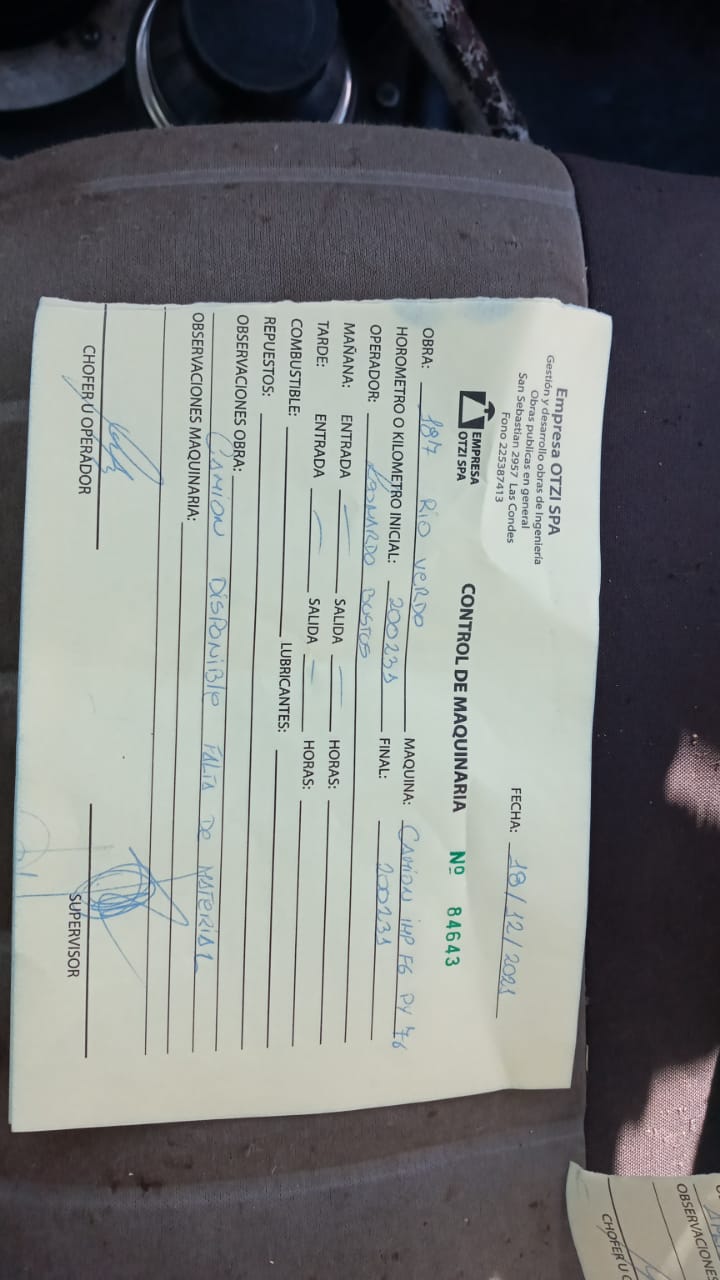 Empresa OTZI SPA
Gestión y desarrollo obras de Ingeniería
Obras publicas en general
San Sebastian 2957 Las Condes
Fono 225387413
EMPRESA
OTZI SPA
FECHA: 18/12/2021
CONTROL DE MAQUINARIA Nº 84643
OBRA: 187 Rio Verdo MAQUINA: CAMION IMP FG PY 76
HOROMETRO O KILOMETRO INICIAL: 200231 FINAL: 200231
OPERADOR: LEONARDO BUSTOS
MAÑANA: ENTRADA — SALIDA — HORAS:
TARDE: ENTRADA — SALIDA — HORAS:
COMBUSTIBLE: LUBRICANTES:
REPUESTOS:
OBSERVACIONES OBRA:
CAMION DISPONIBLE FALTA DE MATERIAL
OBSERVACIONES MAQUINARIA:
CHOFER U OPERADOR SUPERVISOR
OBSERVACIONES
CHOFER U